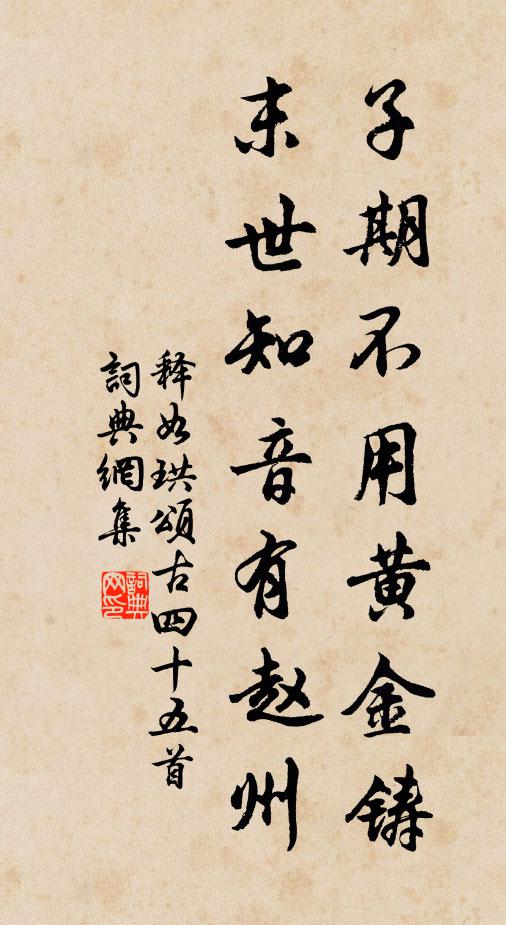 子期不用黄金铸
末世知音有赵州
释如珙頌古四十五首
詞典網集
詞典网印